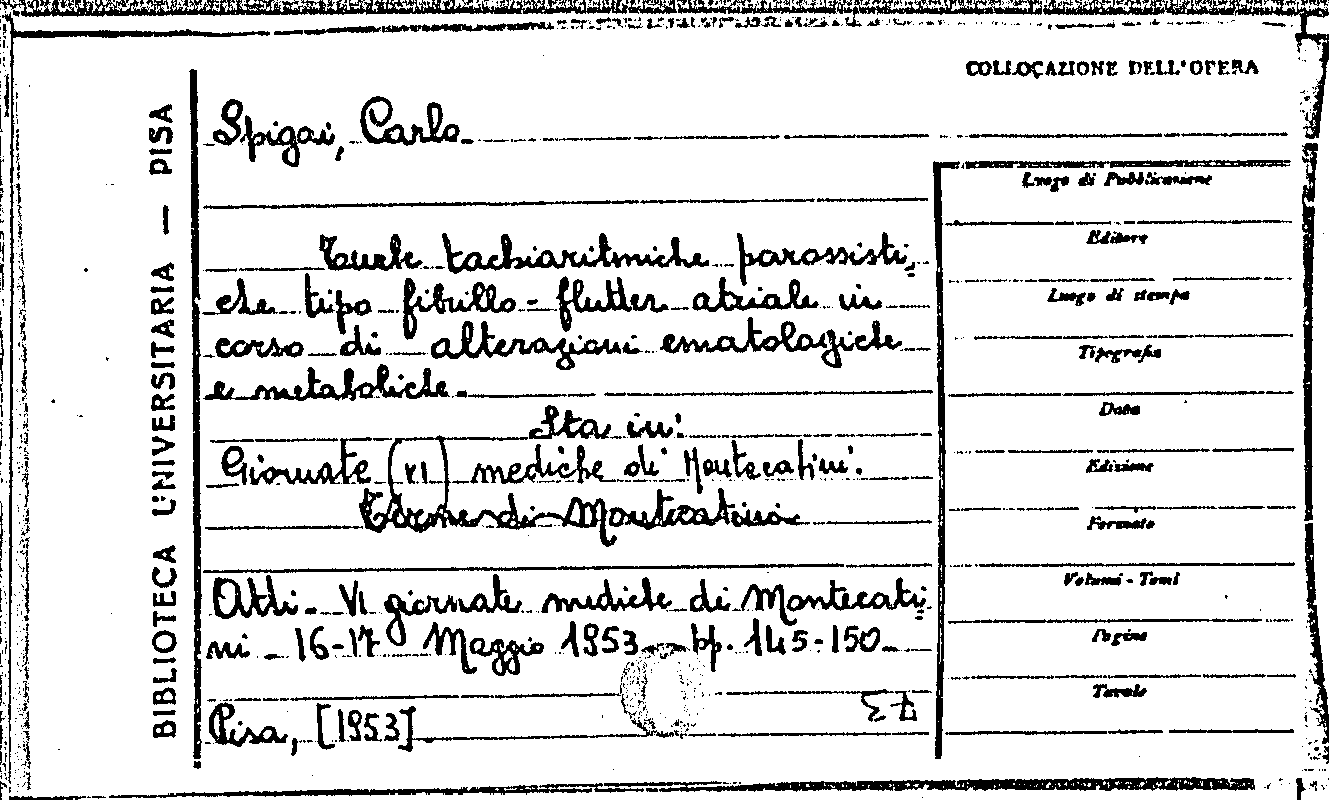 COLLOCAZIONE DELL'OPERA
BIBLIOTECA UNIVERSITARIA — PISA
Spigai, Carlo.
Turbe tachiaritmiche parossisti=
che tipo fibrillo-flutter atriale in
corso di alterazioni ematologiche
e metaboliche.
Sta in:
Giornate (VI) mediche di Montecatini.
Terme di Montecatini
Atti - VI giornate mediche di Montecati=
ni - 16-17 Maggio 1953 - pp. 145-150.
Pisa, [1953].
Luogo di Pubblicazione
Editore
Luogo di stampa
Tipografia
Data
Edizione
Formato
Volumi - Tomi
Pagine
Tavole